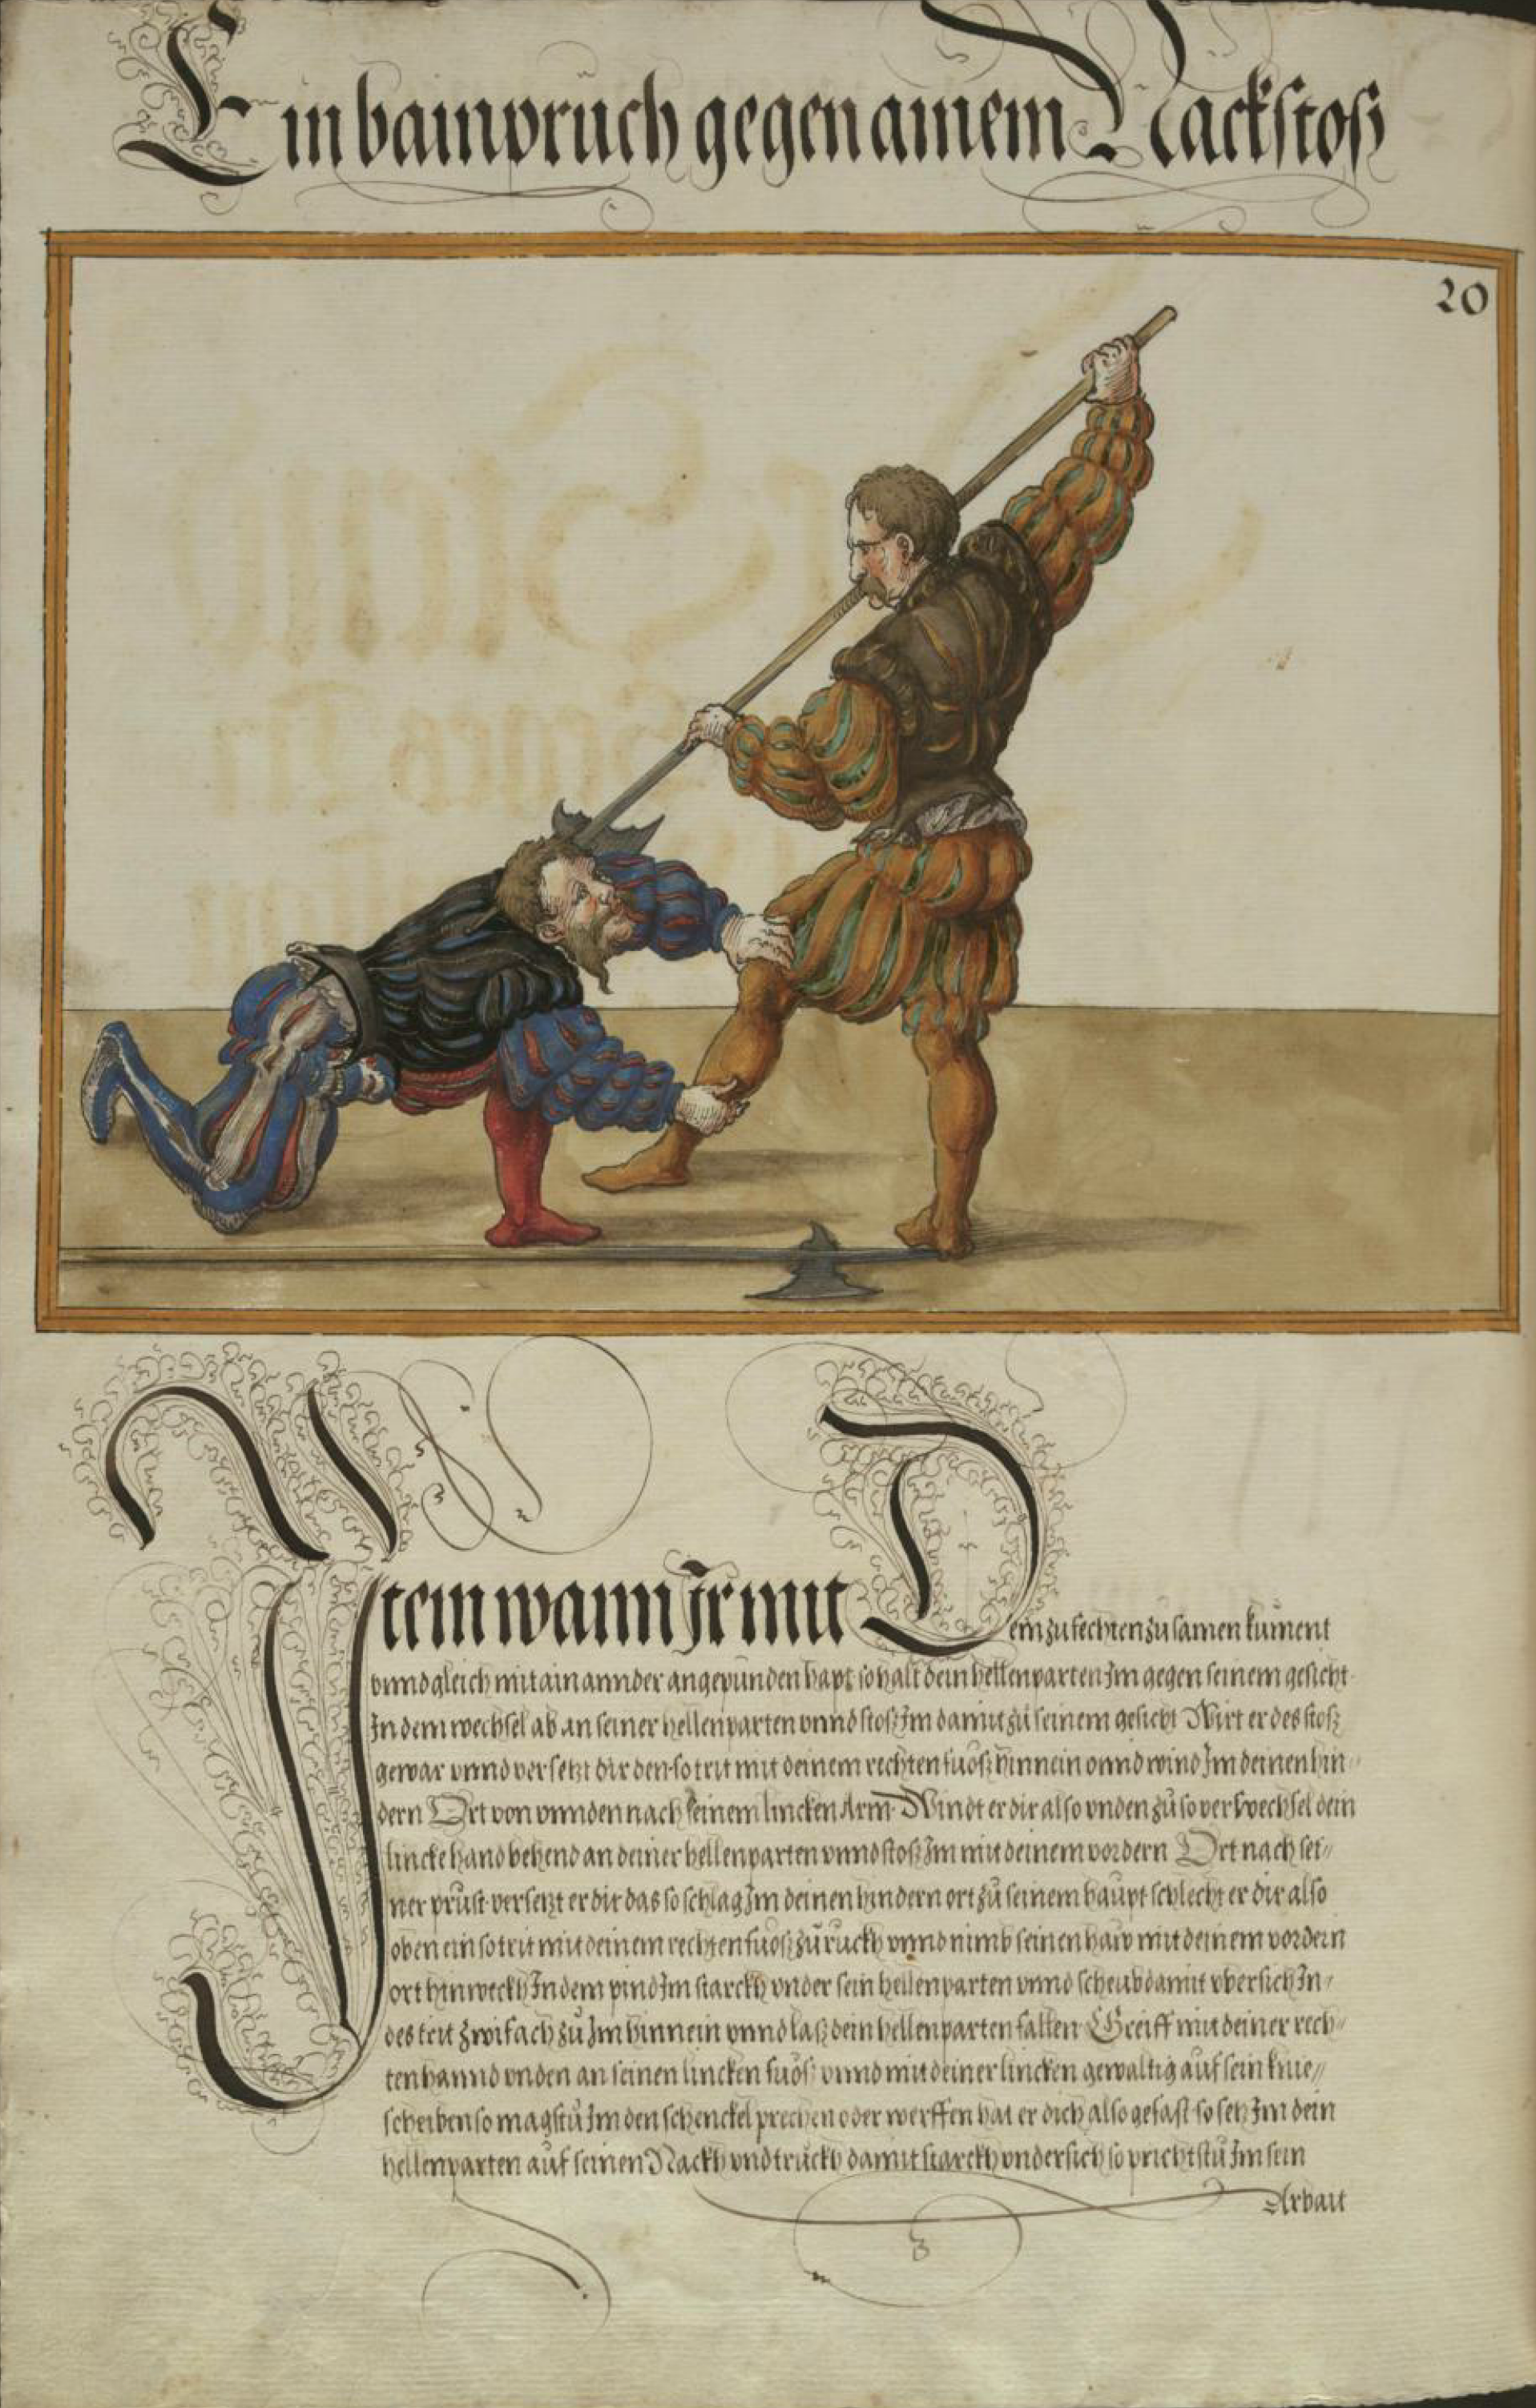 Ein bainpruch gegen ainem Nackstosz
20
Item wann Ir mit Dem zufechten zusamen kument
vnnd gleich mit ain annder angepunden hapt so halt dein hellenparten Im gegen seinem gesicht
In dem wechsel ab an seiner hellenparten vnnd stosz Im damit zů seinem gesicht Wirt er des stosz
gewar vnnd versetzt dir den so trit mit deinem rechten fuosz hinnein vnnd wind Im deinen hin-
dern Ort von vnnden nach seinem lincken Arm Windt er dir also vnden zů so verwechsel dein
lincke hand behend an deiner hellenparten vnnd stosz Im mit deinem vordern Ort nach sei-
ner prust versetzt er dir das so schlag Im deinen hindern ort zů seinem haupt schlecht er dir also
oben ein so trit mit deinem rechten fuosz zů ruckh vnnd nimb seinen haw mit deinem vordern
ort hinweckh In dem pind Im starckh vnder sein hellenparten vnnd scheub damit vbersich In-
des trit zwifach zů Im hinnein vnnd lasz dein hellenparten fallen Greiff mit deiner rech-
ten hannd vnden an seinen lincken fuosz vnnd mit deiner lincken gewaltig auf sein knie-
scheiben so magstů Im den schenckel prechen oder werffen hat er dich also gefast so setz Im dein
hellenparten auf seinen Nackh vnd truckh damit starckh vndersich so prichstů Im sein
Arbait